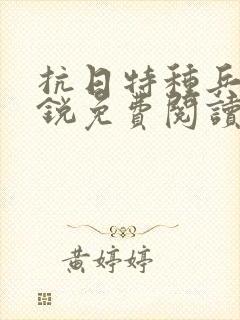 抗日特種兵
銳免費閱讀
黃婷婷